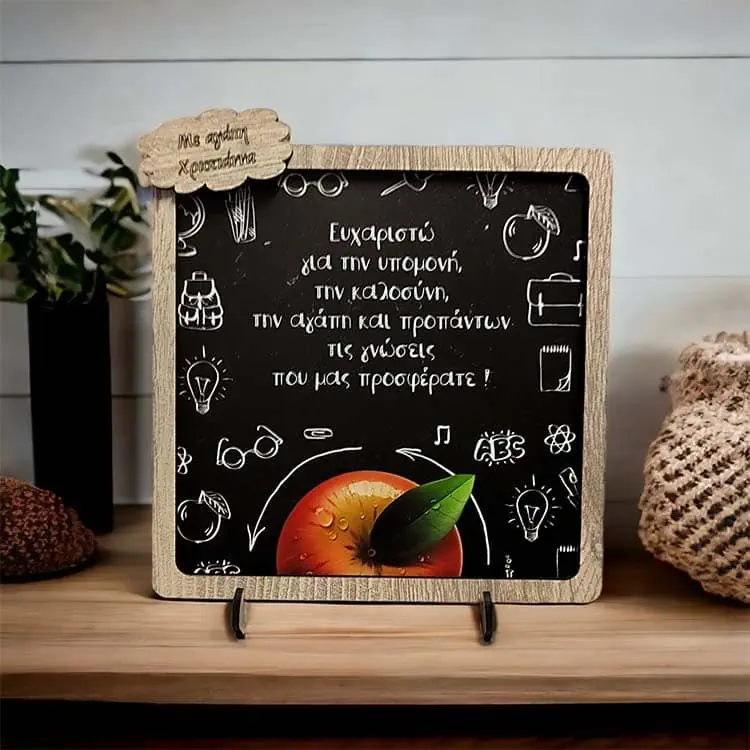 Με αγάπη
Χριστιάννα
Ευχαριστώ
για την υπομονή,
την καλοσύνη,
την αγάπη και προπάντων
τις γνώσεις
που μας προσφέρατε !
ABC